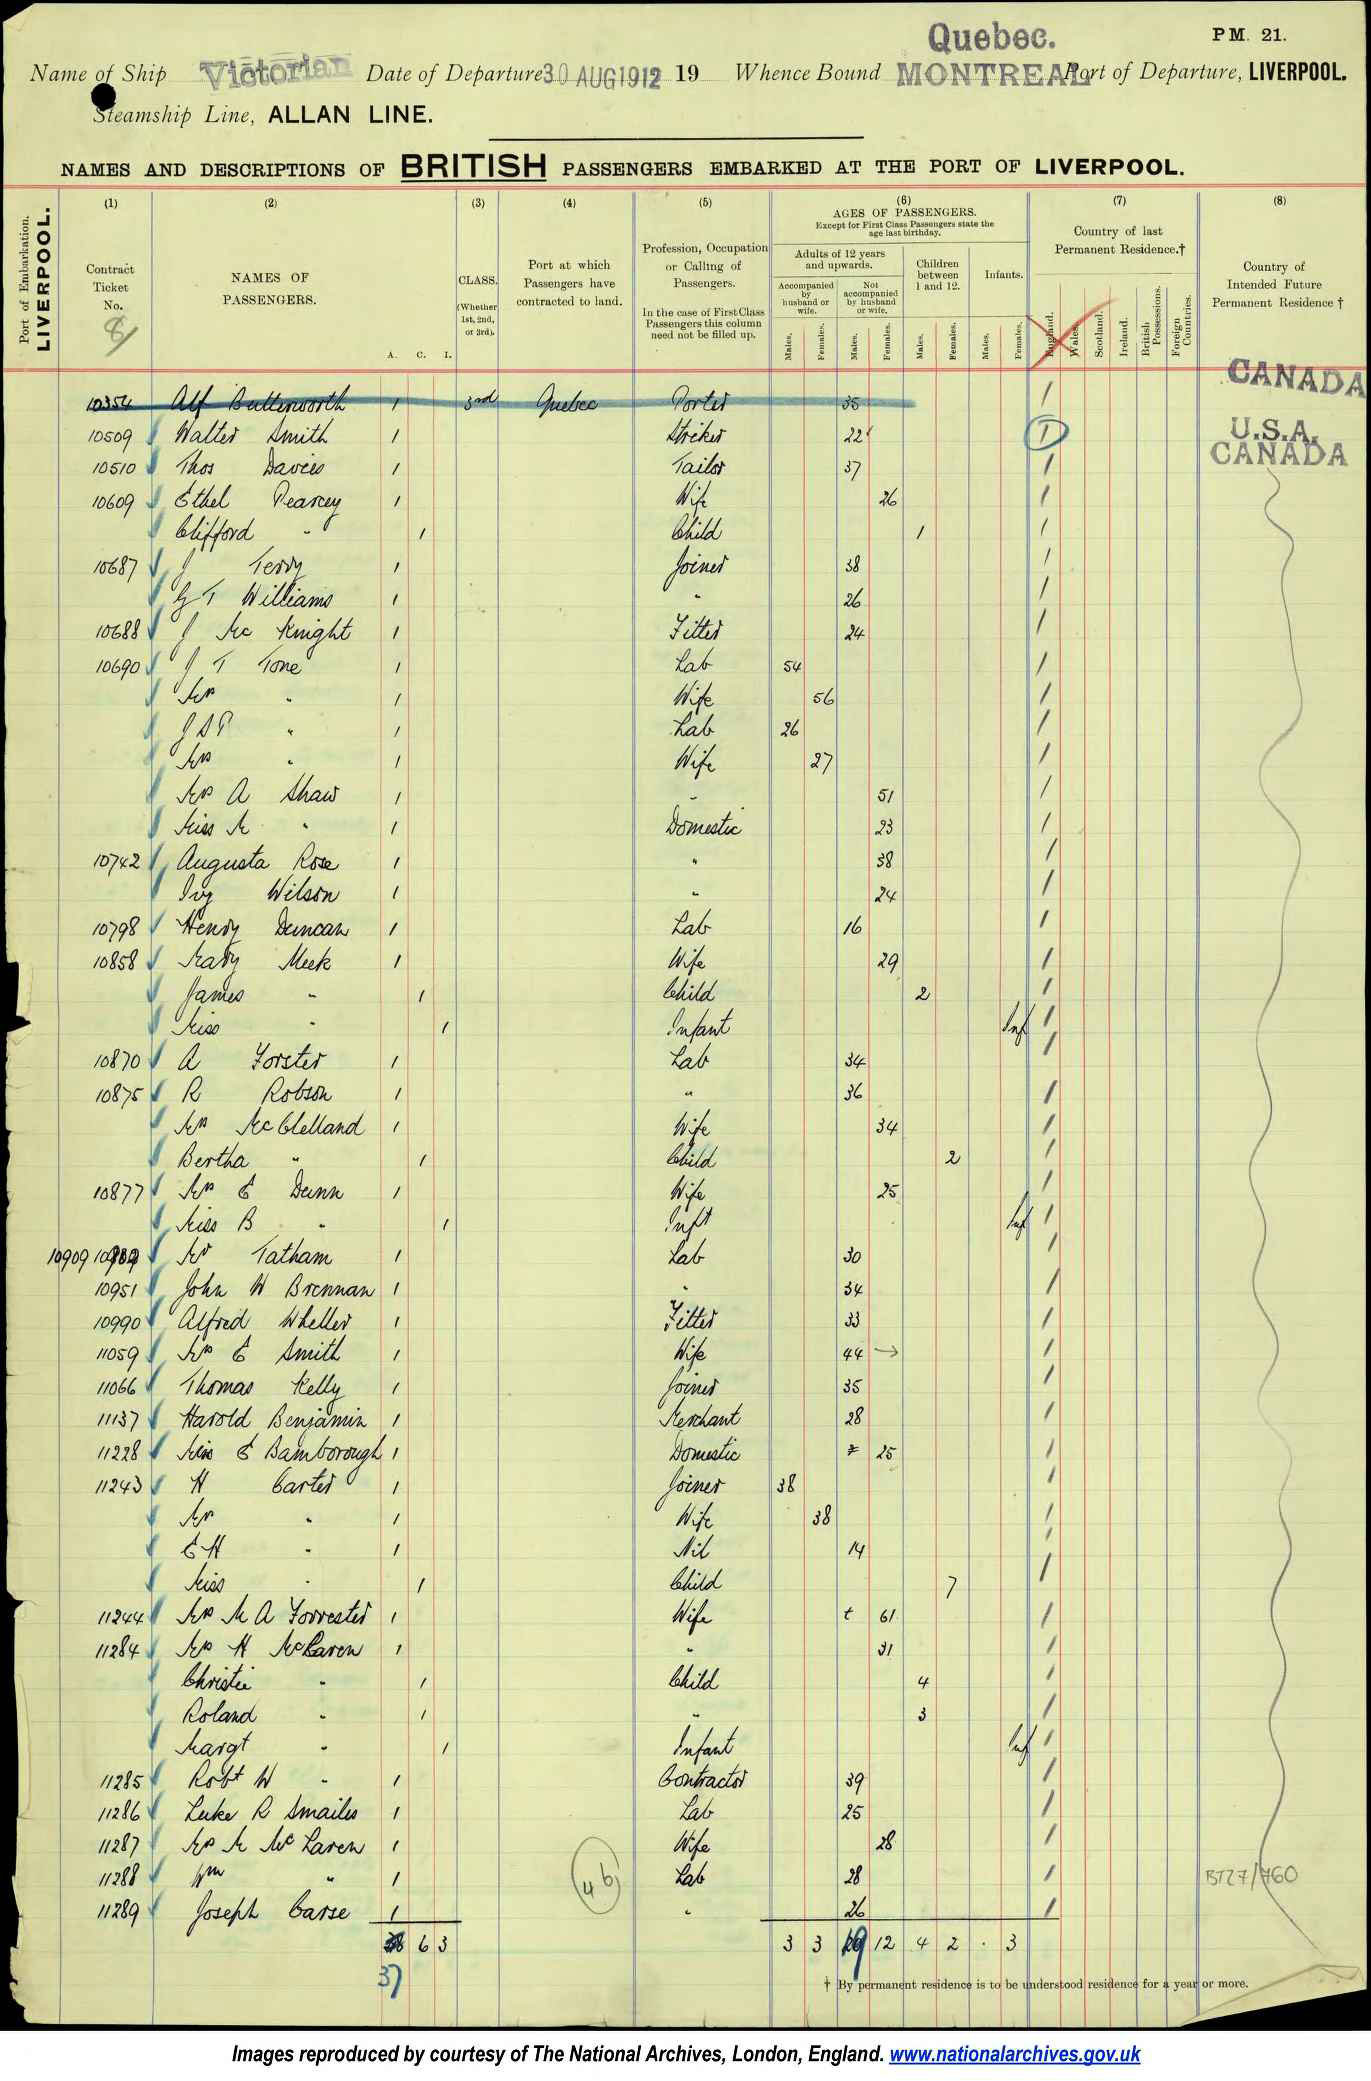 Quebec. PM. 21.
Name of Ship Victorian Date of Departure 30 AUG 1912 19 Whence Bound MONTREAL Port of Departure, LIVERPOOL.
Steamship Line, ALLAN LINE.
NAMES AND DESCRIPTIONS OF BRITISH PASSENGERS EMBARKED AT THE PORT OF LIVERPOOL.
Port of Embarkation. LIVERPOOL.
(1) Contract Ticket No. 8/
(2) NAMES OF PASSENGERS. A. C. I.
(3) CLASS. (Whether 1st, 2nd, or 3rd).
(4) Port at which Passengers have contracted to land.
(5) Profession, Occupation or Calling of Passengers. In the case of First Class Passengers this column need not be filled up.
(6) AGES OF PASSENGERS. Except for First Class Passengers state the age last birthday.
Adults of 12 years and upwards. Children between 1 and 12. Infants.
Accompanied by husband or wife. Not accompanied by husband or wife.
Males. Females. Males. Females. Males. Females. Males. Females.
(7) Country of last Permanent Residence.†
England. Wales. Scotland. Ireland. British Possessions. Foreign Countries.
(8) Country of Intended Future Permanent Residence †
10354 Alf Butterworth 1 3rd Quebec Porter 35 1 CANADA
10509 Walter Smith 1 Striker 22 1 U.S.A.
10510 Thos Davies 1 Tailor 37 1 CANADA
10609 Ethel Pearcey 1 Wife 26 1
Clifford " 1 Child 1 1
10687 J Terry 1 Joiner 38 1
G T Williams 1 " 26 1
10688 J McKnight 1 Fitter 24 1
10690 J T Tone 1 Lab 54 1
Mrs " 1 Wife 56 1
J S P " 1 Lab 26 1
Mrs " 1 Wife 27 1
Mrs A Shaw 1 " 51 1
Miss M " 1 Domestic 23 1
10742 Augusta Rose 1 " 38 1
Ivy Wilson 1 " 24 1
10798 Henry Duncan 1 Lab 16 1
10858 Mary Meek 1 Wife 29 1
James " 1 Child 2 1
Miss " 1 Infant Inf 1
10870 A Forster 1 Lab 34 1
10875 R Robson 1 " 36 1
Mrs McClelland 1 Wife 34 1
Bertha " 1 Child 2 1
10877 Mrs E Dunn 1 Wife 25 1
Miss B " 1 Inft Inf 1
10909 Mr Tatham 1 Lab 30 1
10951 John W Brennan 1 " 34 1
10990 Alfred Wheller 1 Fitter 33 1
11059 Mrs E Smith 1 Wife 44 → 1
11066 Thomas Kelly 1 Joiner 35 1
11137 Harold Benjamin 1 Merchant 28 1
11228 Miss E Bamborough 1 Domestic 25 1
11243 H Carter 1 Joiner 38 1
Mrs " 1 Wife 38 1
E H " 1 Nil 14 1
Miss " 1 Child 7 1
11244 Mrs M A Forrester 1 Wife 61 1
11284 Mrs H McLaren 1 " 31 1
Christie " 1 Child 4 1
Roland " 1 " 3 1
Margt " 1 Infant Inf 1
11285 Robt W " 1 Contractor 39 1
11286 Luke R Smailes 1 Lab 25 1
11287 Mrs M McLaren 1 Wife 28 1
11288 Wm " 1 Lab 28 1 BT27/760
11289 Joseph Carse 1 " 26 1
46
6 3 3 3 19 12 4 2 . 3
37
† By permanent residence is to be understood residence for a year or more.
Images reproduced by courtesy of The National Archives, London, England. www.nationalarchives.gov.uk